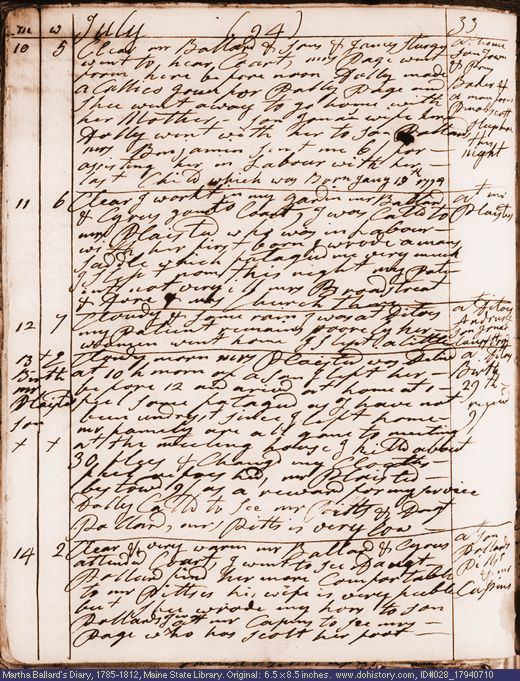 m w July (94) 33
10 5 Clear mr Ballard & Sons & James Sturgs
went to hear Court, mrs Page went
from here before noon Dolly made
a Callico gown for Patty Page and
Shee went away to go home with
her Mother. Son Jona's wife here
Dolly went with her to Son Pollards
mrs Benjamin sent me 6/ for
asisting her in Labour with her
last Child which was Born Jany 13th 1794
at home
Son Town
& Ben
Baker &
a man from
Penobscott
Sleep here
this
night
11 6 Clear I workt in my gardin mr Ballard
& Cyrus gone to Court, I was Calld to
mr Plaisted wife who was in Labour
with her first born I wrode a mans
Saddle which fatagud me very much
I Slept some this night my Pati-
ent not very ill mrs Broadstreet
& Fore & mrs Church there
at mr
Plaisteds
12 7 Cloudy & Some rain I was at Ditos
my Patient remains poorly her
women went home I slept a little
at Ditoes
13 + g Cloudy morn mrs Plaisted was Delivd
at 10 h morn of a Son I left her
before 12 and arivd at home at
feel some fatagud as I have not
been undrest since I left home
mr family are all gone to meeting
at the meeting house I held about
30 & Changd my Cloaths
his shoes had mr Plaisted
bestowd 9/ as a reward for my service
Dolly Calld to see mr Pitts & Dagt
Pollard, mrs Pitts is very low
Birth
mr
Plaisteds
Son
+ +
at Ditos
Birth
29th
receivd
9/
14 2 Clear & very warm mr Ballard & Cyrus
attend Court, I went to see Daugt
Pollard find her more Comfortable
to mr Pittses his wife is very feeble
but Shee wrode my hors to son
Pollards I at mr Capins to see mrs
Page who has Scolt her foot
at Son
Pollards
Pitts
& mr
Capins
Martha Ballard's Diary, 1785-1812, Maine State Library. Original: 6.5 x 8.5 inches. www.dohistory.com, ID#028_17940710